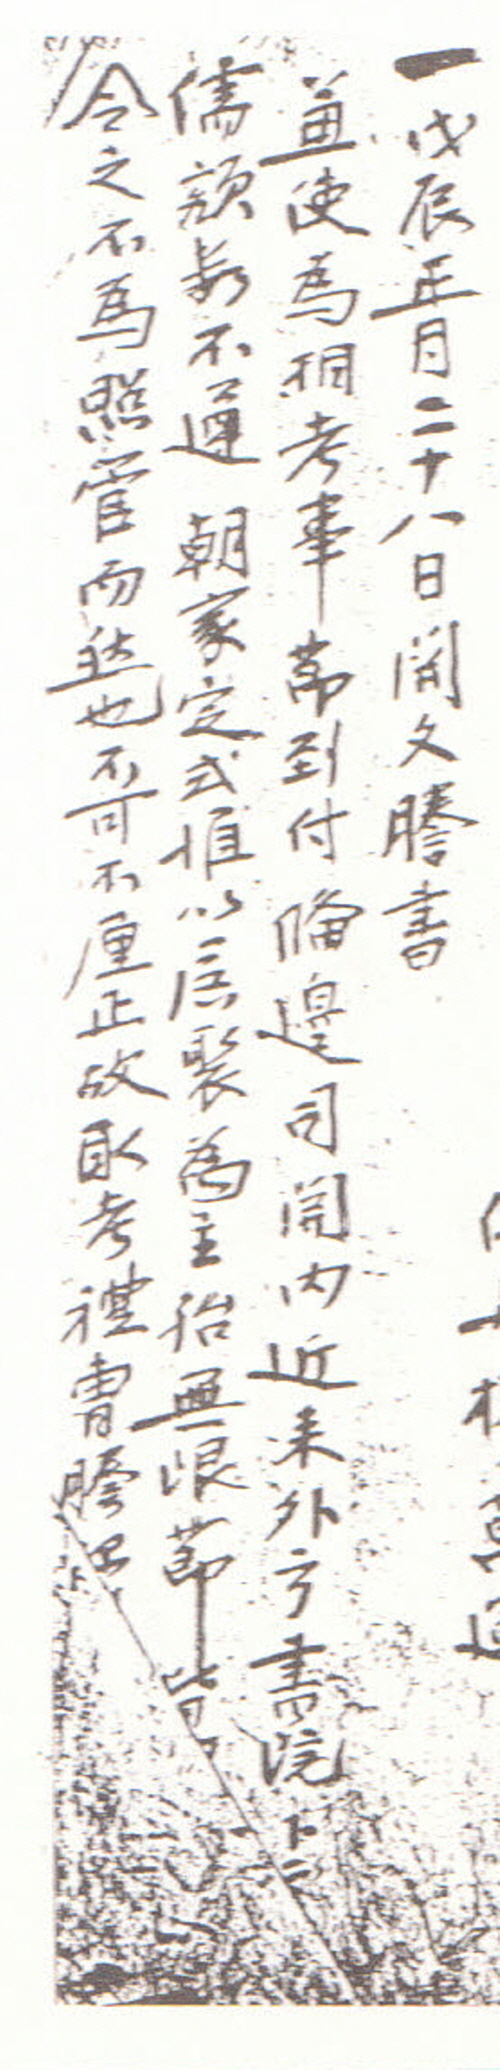 一戊辰正月二十八日關文謄書
兼使爲相考事節到付 備邊司關內近來外方書院
儒額數不遵 朝家定式惟以廣聚爲主貽無限節皆
令之不爲照管而然也不可不厘正故取考禮曹謄